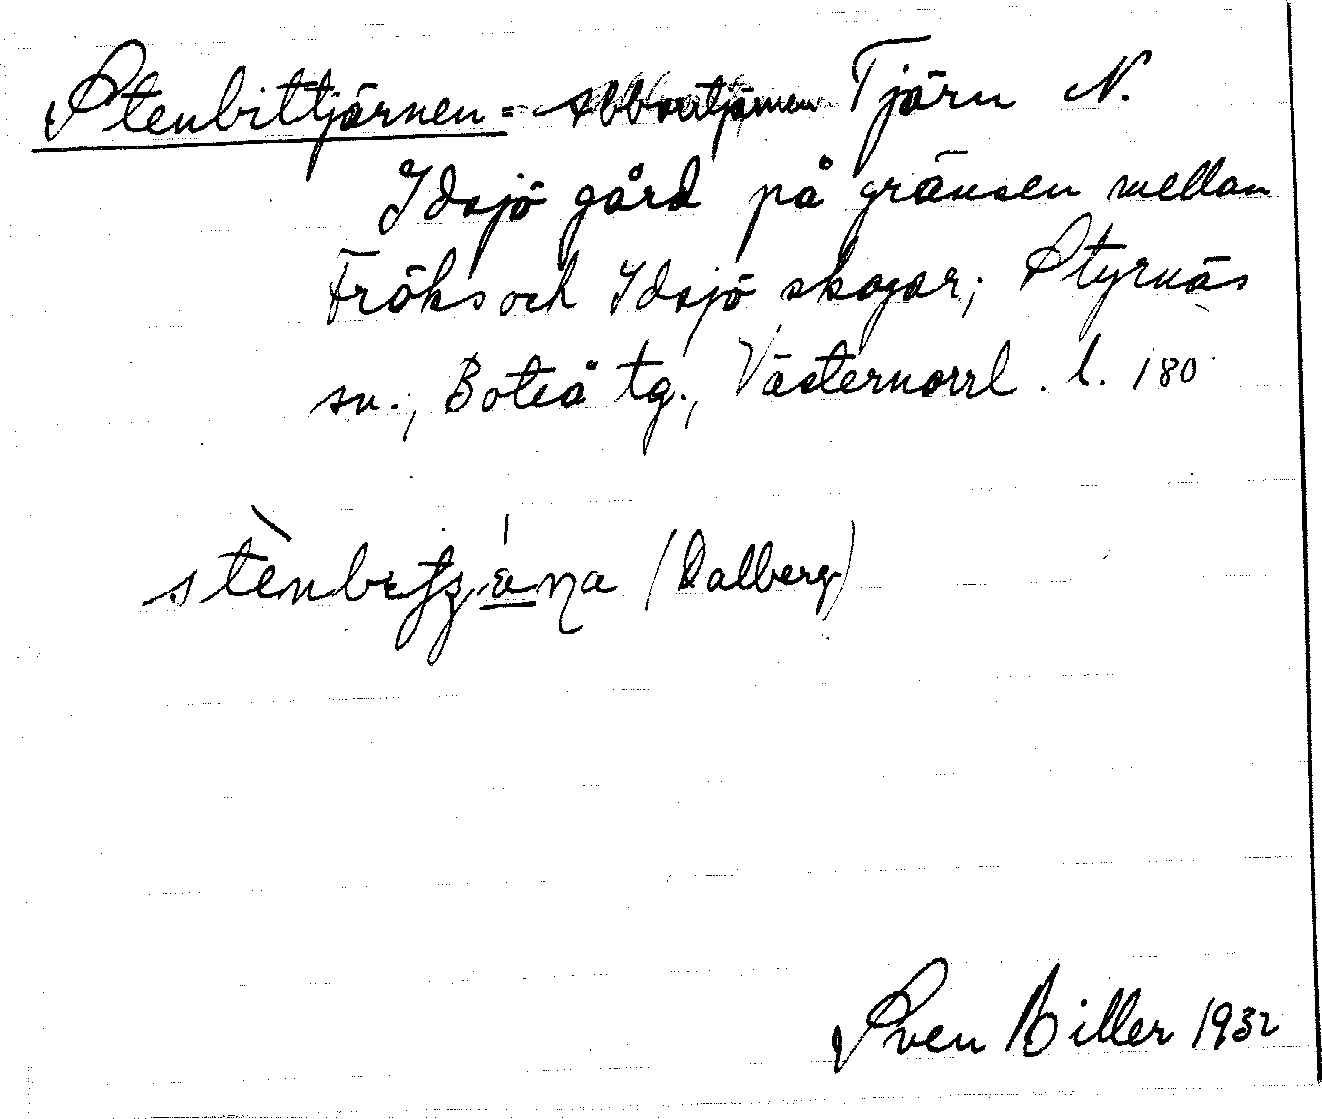 Stenbittjärnen = Abborrtjärnen Tjärn N.
Idsjö gård på gränsen mellan
Fröks och Idsjö skogar; Styrnäs
sn., Boteå tg., Västernorrl. l. 180
(Dalberg)
Sven Biller 1932